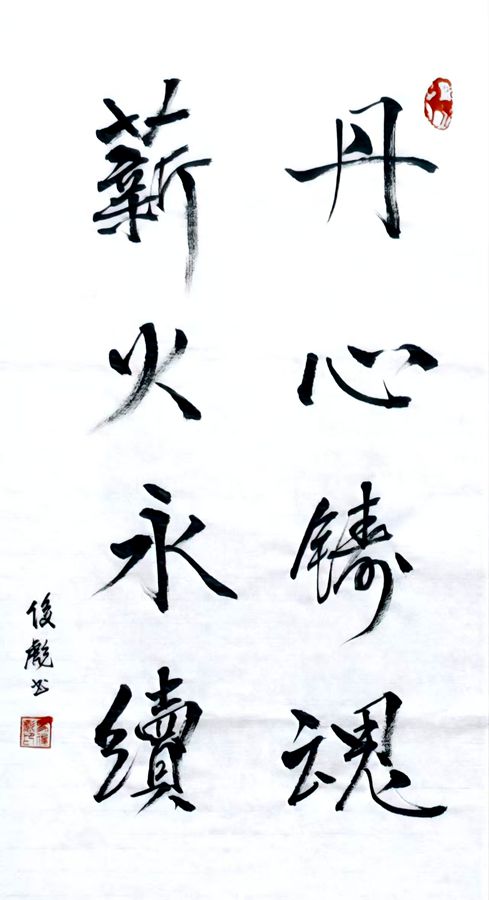 丹心鑄魂
薪火永續
俊彪书